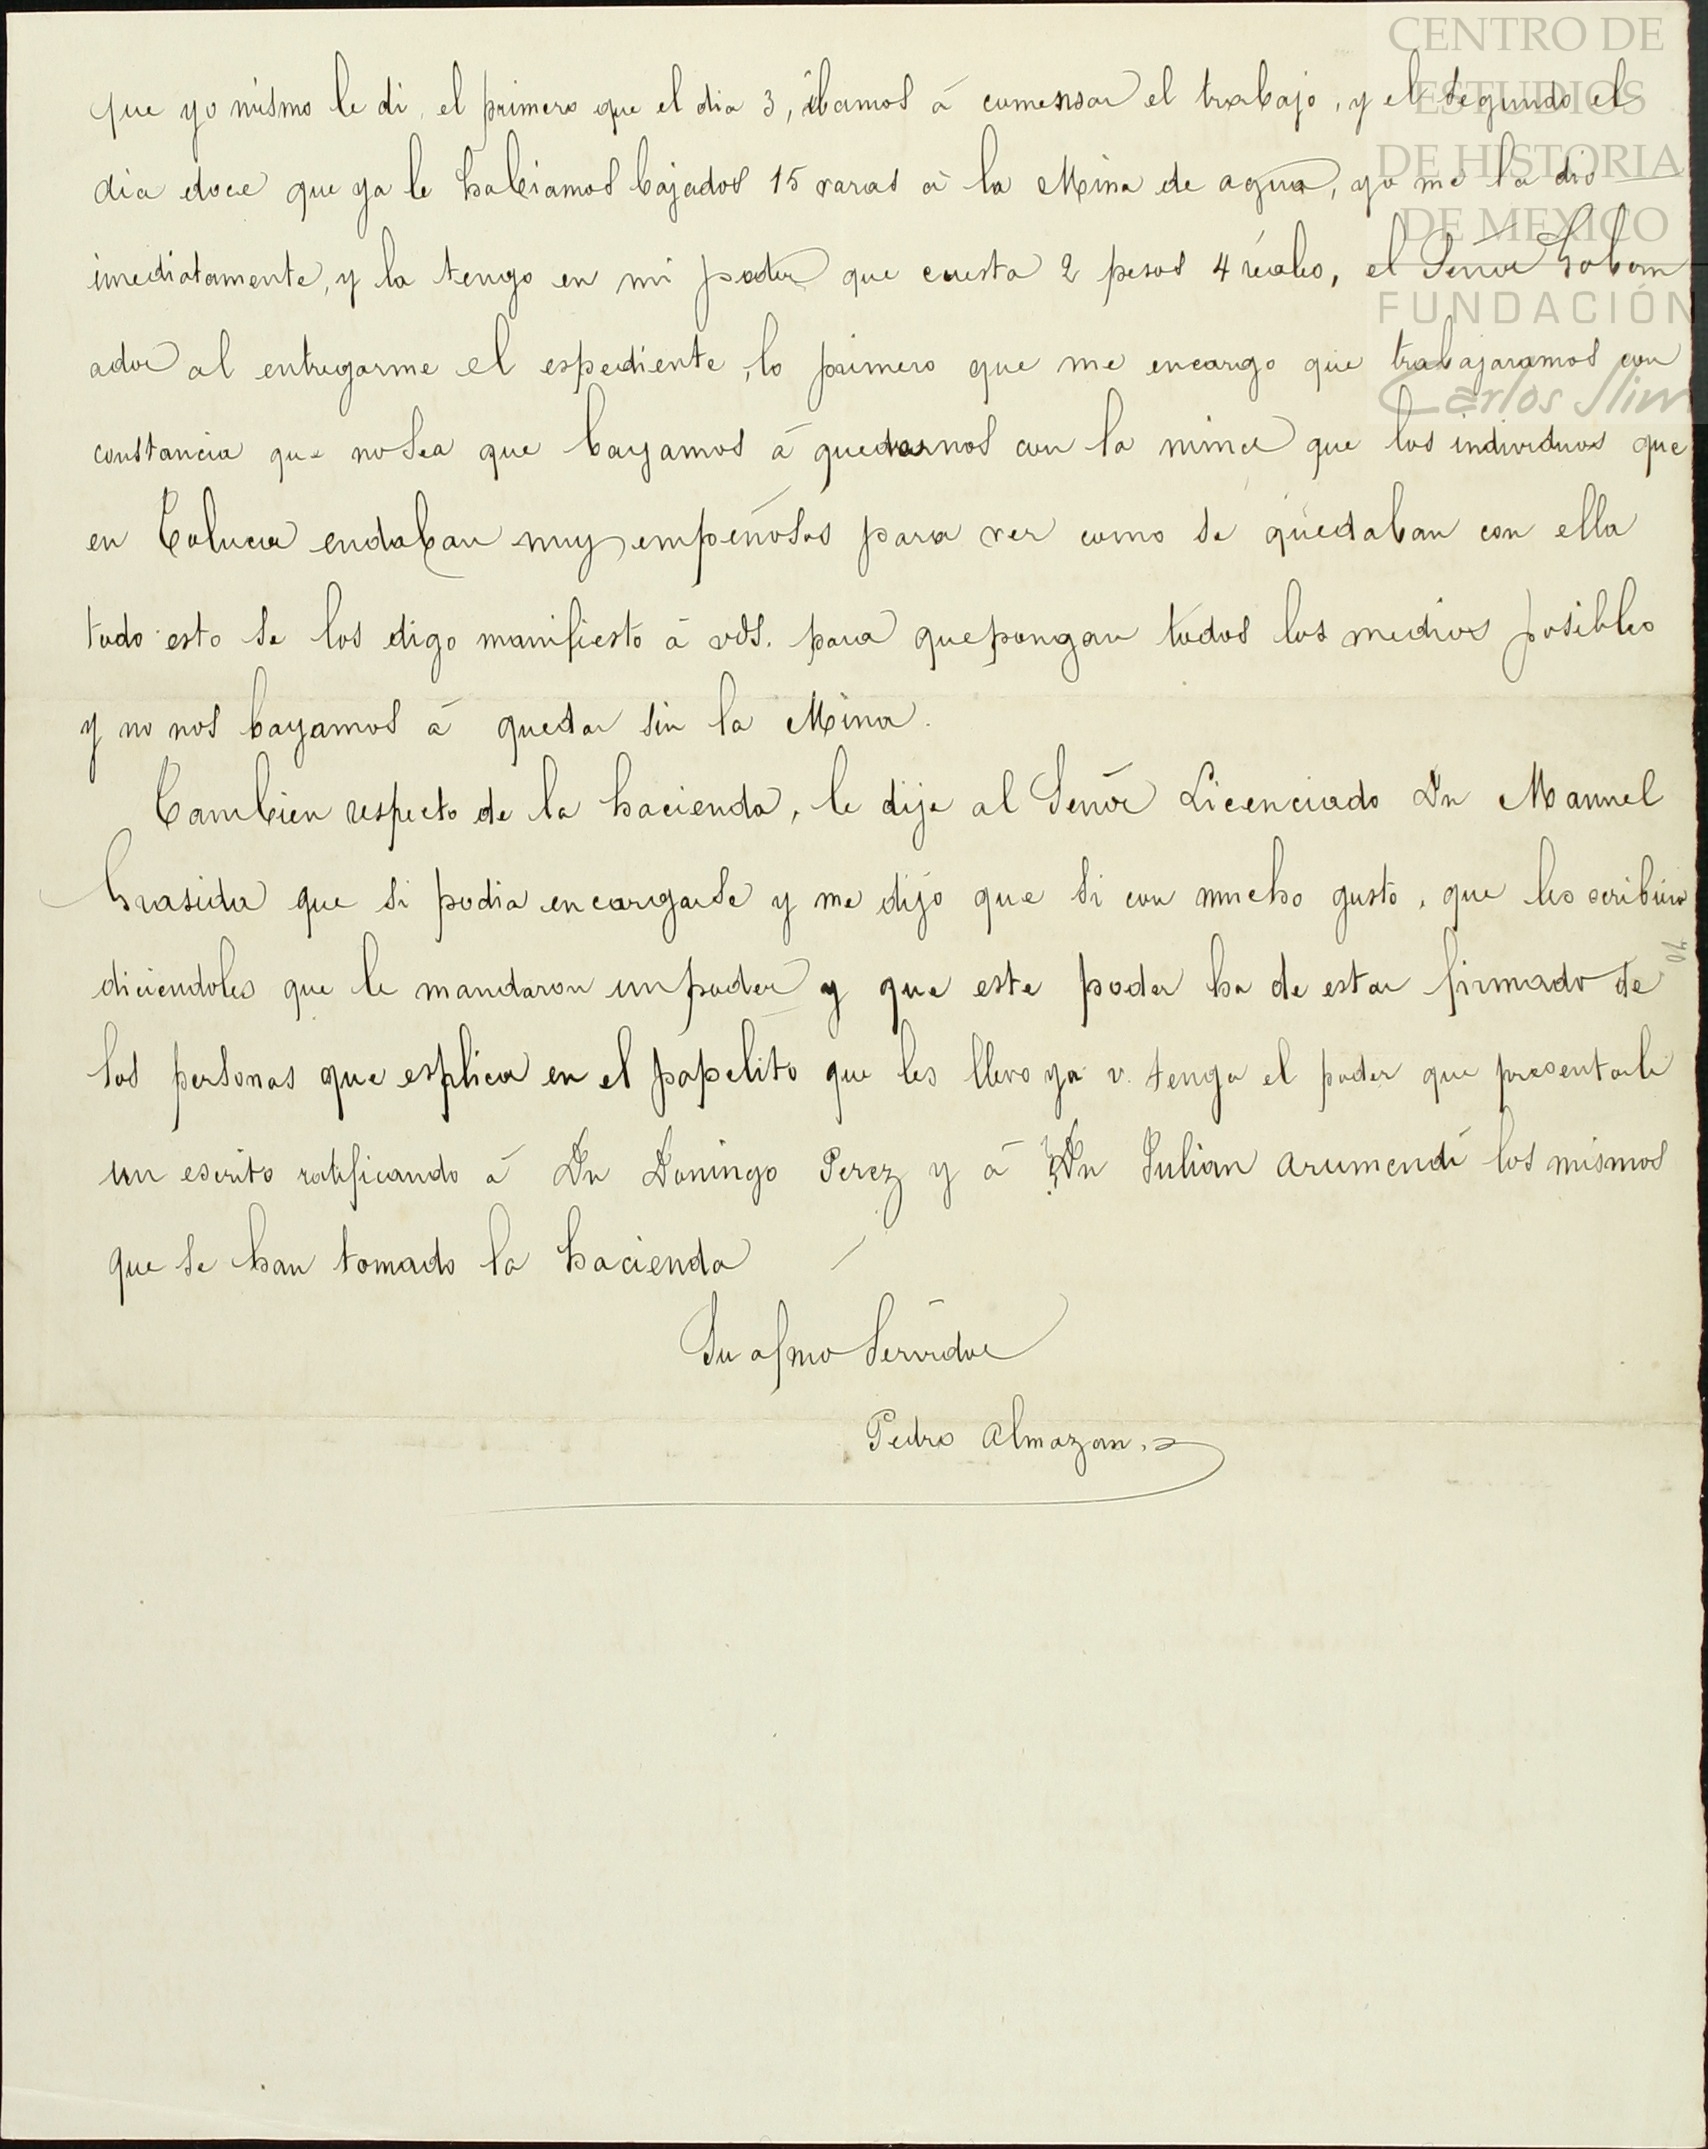 CENTRO DE
ESTUDIOS
DE HISTORIA
DE MEXICO
FUNDACIÓN
Carlos Slim
que yo mismo le di, el primero que el dia 3, ibamos á comensar el trabajo, y el segundo el
dia doce que ya le habiamos bajados 15 varas á la Mina de agua, yo me la dio
imediatamente, y la tengo en mi poder que cuesta 2 pesos 4 reales, el Señor Gobern
ador al entregarme el espediente, lo primero que me encargo que trabajaramos con
constancia que no sea que bayamos á quedarnos con la mina que los individuos que
en Toluca endaban muy empeñosos para ver como se quedaban con ella
todo esto se los digo manifiesto á vds. para que pongan todos los medios posibles
y no nos bayamos á quedar sin la Mina.
Tambien respecto de la hacienda, le dije al Señor Licenciado Dn Manuel
que si podia encargarse y me dijo que si con mucho gusto, que les scribiera
diciendoles que le mandaron un poder y que este poder ha de estar firmado de
las personas que esplica en el papelito que les llevo ya v. tenga el poder que presentarle
un escrito ratificando á Dn Domingo Perez y á Dn Julian Arumendi los mismos
que se han tomado la hacienda
Su afmo Servidor
Pedro Almazan.